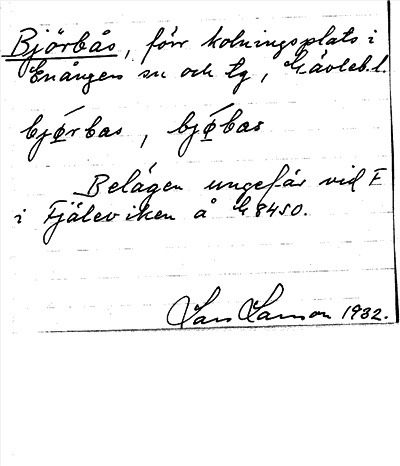 Björbås, förr kolningsplats i
Enångers sn och tg, Gävleb. l.
bjǿrbas, bjǿbas
Belägen ungefär vid F
i Fjäleviken å G 8450.
Lars Larsson 1932.